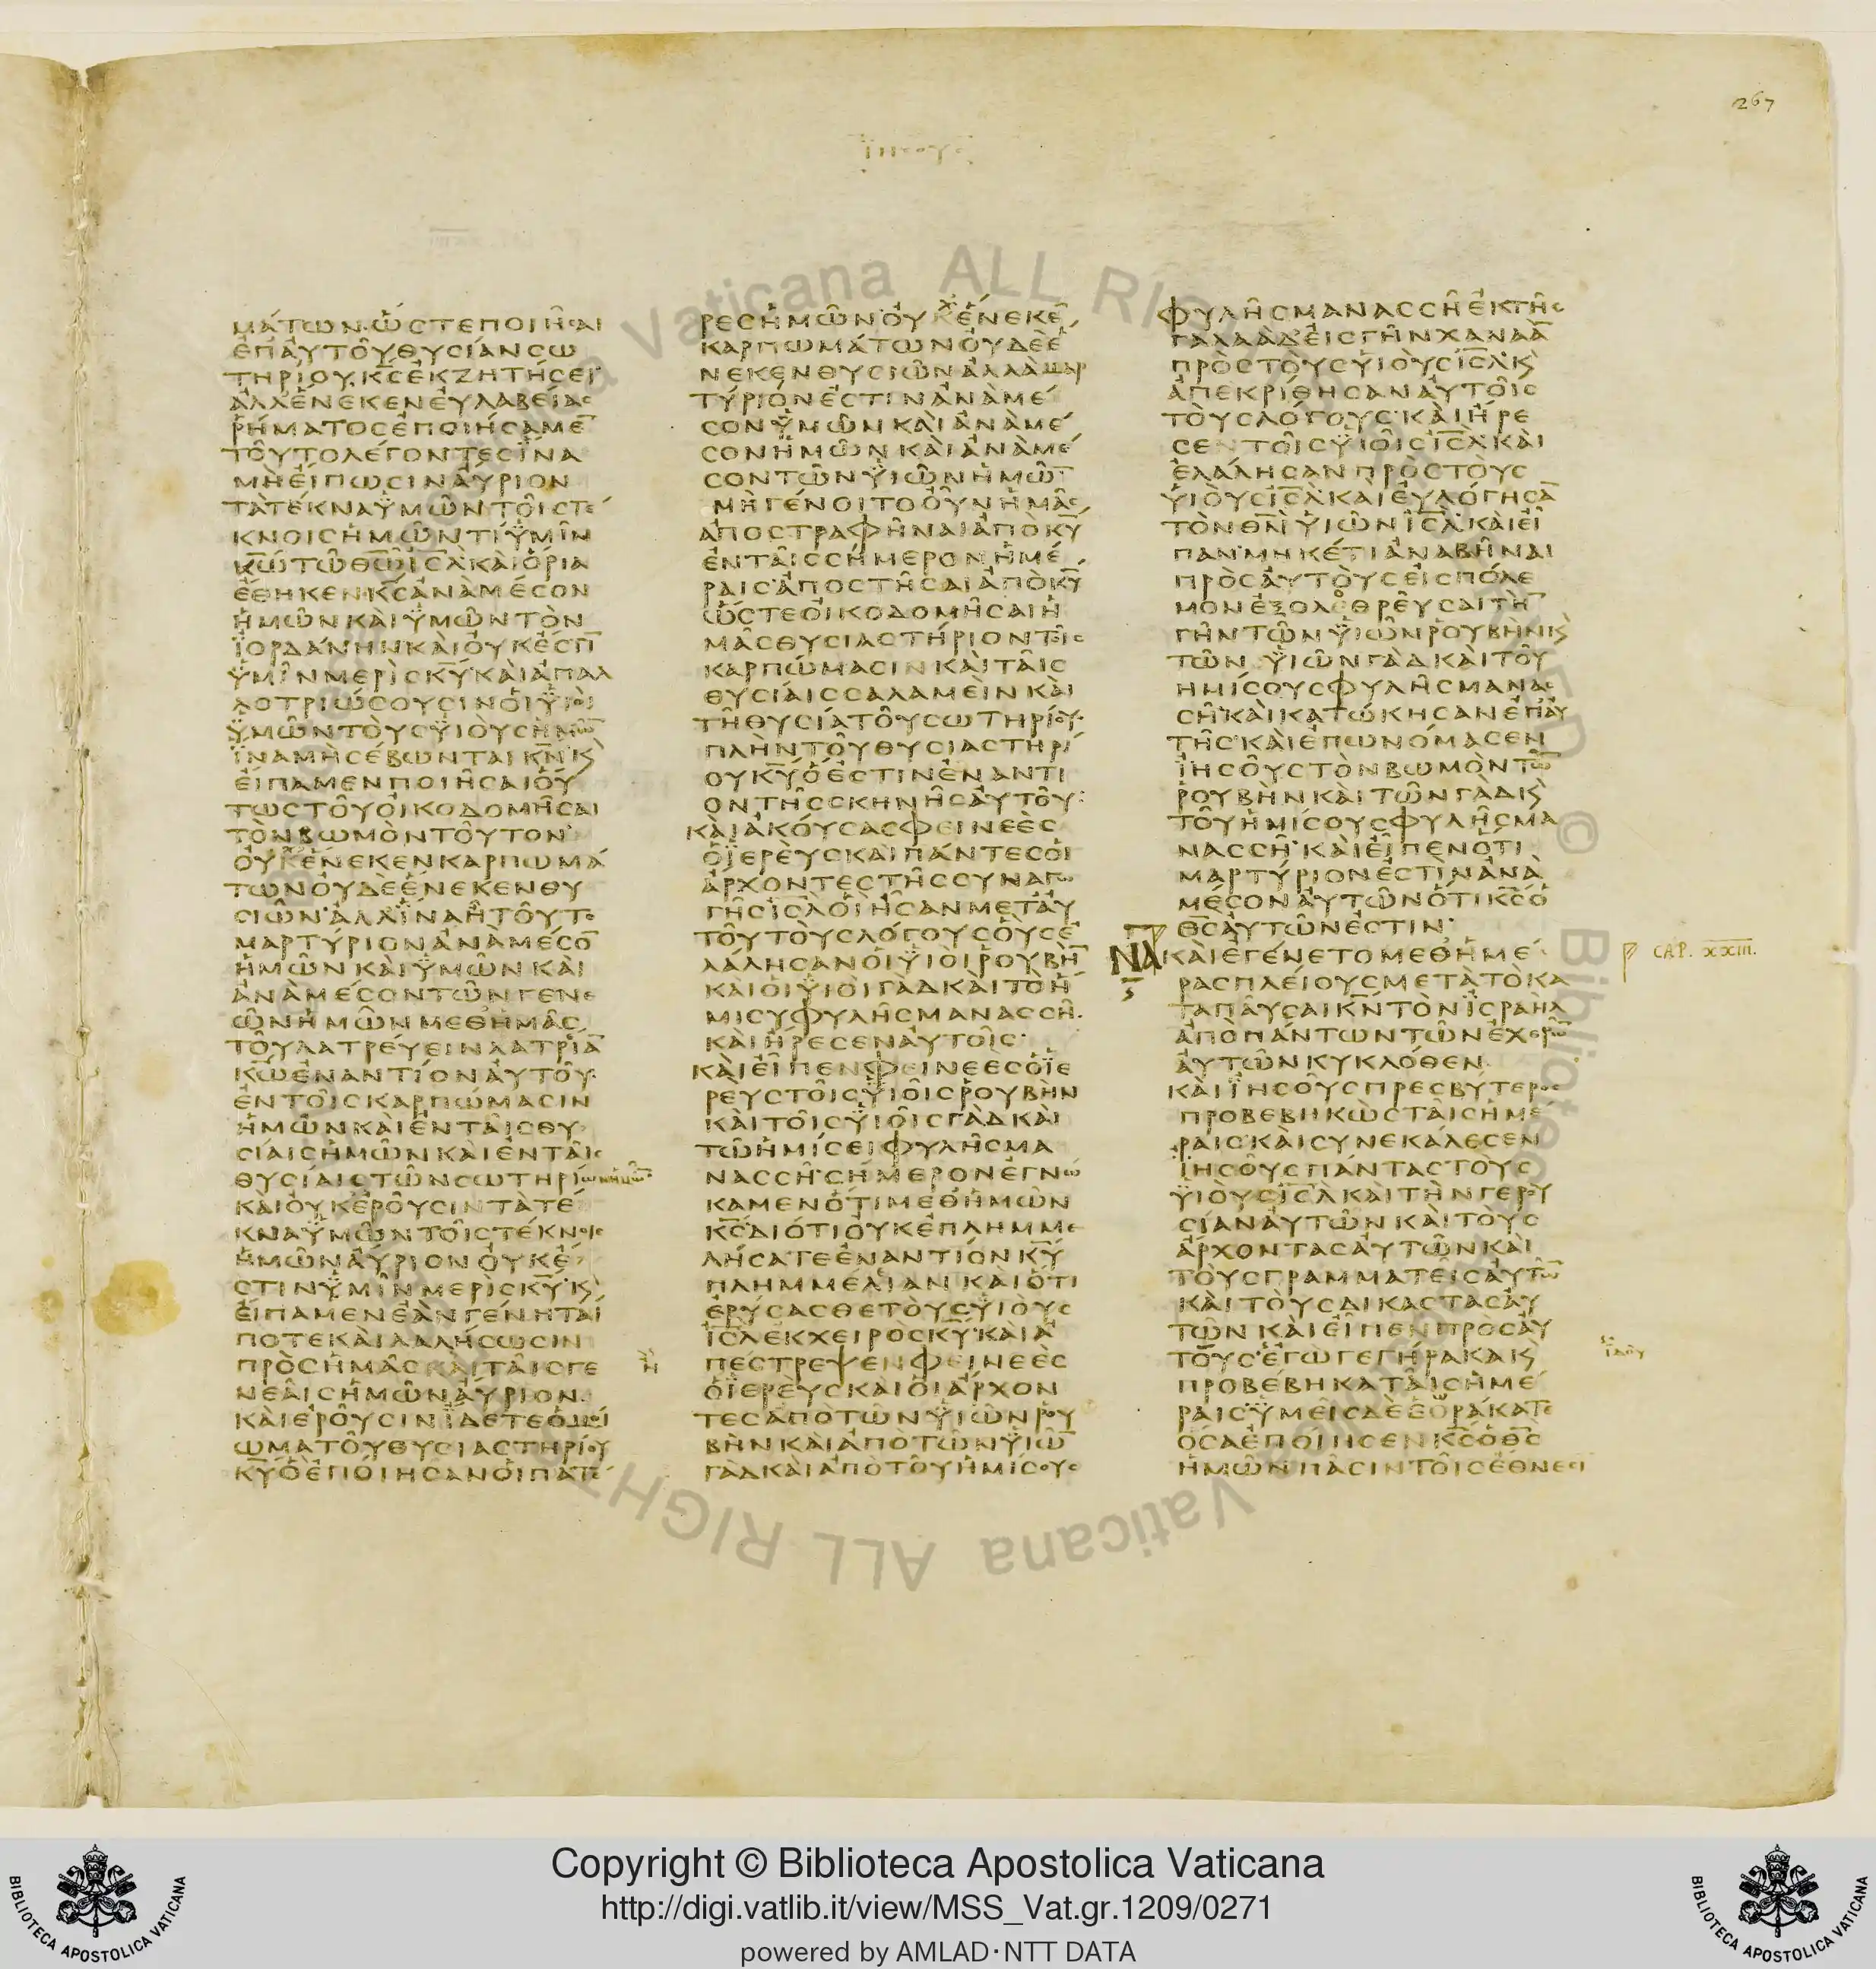 267
ϊησους
μάτων· ὥστε ποιῆσαι
ἐπ' αὐτοῦ θυσίαν σω
τηρίου, κ̅ς̅ ἐκζητήσει·
ἀλλ' ἕνεκεν εὐλαβείας
ῥήματος ἐποιήσαμε̅
τοῦτο λέγοντες ἵνα
μὴ εἴπωσιν αὔριον
τὰ τέκνα ὑμῶν τοῖς τέ
κνοις ἡμῶν τί ὑμῖν
κ̅ω̅ τῶ θ̅ω̅ ι̅σ̅λ̅ καὶ ὅρια
ἔθηκεν κ̅ς̅ ἀνὰ μέσον
ἡμῶν καὶ ὑμῶν τὸν
ἰορδάνην καὶ οὐκ ἔστι̅
ὑμῖν μερὶς κ̅υ̅· καὶ ἀπαλ
λοτριώσουσιν οἱ υἱοὶ
ὑμῶν τοὺς υἱοὺς ἡμῶ̅
ἵνα μὴ σέβωνται κ̅ν̅· κ̀
εἴπαμεν ποιῆσαι οὕ
τως τοῦ οἰκοδομῆσαι
τὸν βωμὸν τοῦτον
οὐχ ἕνεκεν καρπωμά
των οὐδὲ ἕνεκεν θυ
σιῶν· ἀλλ' ἵνα ἦ τοῦτο
μαρτύριον ἀνὰ μέσο̅
ἡμῶν καὶ ὑμῶν καὶ
ἀνὰ μέσον τῶν γενε
ῶν ἡμῶν μεθ' ἡμᾶς
τοῦ λατρεύειν λατρία̅
κ̅ω̅ ἐναντίον αὐτοῦ·
ἐν τοῖς καρπώμασιν
ἡμῶν καὶ ἐν ταῖς θυ
σίαις ἡμῶν καὶ ἐν ταῖς
θυσίαις τῶν σωτηρίων ἡμῶ̅
καὶ οὐκ ἐροῦσιν τὰ τέ
κνα ὑμῶν τοῖς τέκνοις
ἡμῶν αὔριον οὐκ ἔ
στιν ὑμῖν μερὶς κ̅υ̅· κ̀
εἴπαμεν ἐὰν γένηταί
ποτε καὶ λαλήσωσιν
πρὸς ἡμᾶς καὶ ταῖς γε
νεαῖς ἡμῶν αὔριον·
καὶ ἐροῦσιν ἴδετε ὁμοί
ωμα τοῦ θυσιαστηρίου
κ̅υ̅ ὃ ἐποίησαν οἱ πατέ
ρες ἡμῶν· οὐχ ἕνεκε̅
καρπωμάτων οὐδὲ ἕ
νεκεν θυσιῶν ἀλλὰ μαρ
τύριόν ἐστιν ἀνὰ μέ
σον ὑμῶν καὶ ἀνὰ μέ
σον ἡμῶν καὶ ἀνὰ μέ
σον τῶν υἱῶν ἡμῶ̅
μὴ γένοιτο οὖν ἡμᾶς
ἀποστραφῆναι ἀπὸ κ̅υ̅
ἐν ταῖς σήμερον ἡμέ
ραις ἀποστῆσαι ἀπὸ κ̅υ̅
ὥστε οἰκοδομῆσαι ἡ
μᾶς θυσιαστήριον τοῖς
καρπώμασιν καὶ ταῖς
θυσίαις σαλαμεὶν καὶ
τῆ θυσία τοῦ σωτηρίου·
πλὴν τοῦ θυσιαστηρί
ου κ̅υ̅ ὅ ἐστιν ἐναντί
ον τῆς σκηνῆς αὐτοῦ:
καὶ ἀκούσας φεινεὲς
ὁ ἱερεὺς καὶ πάντες οἱ
ἄρχοντες τῆς συναγω
γῆς ι̅σ̅λ̅ οἳ ἦσαν μετ' αὐ
τοῦ τοὺς λόγους οὓς ἐ
λάλησαν οἱ υἱοὶ ῥουβὴ̅
καὶ οἱ υἱοὶ γὰδ καὶ τὸ ἥ
μισυ φυλῆς μανασσῆ·
καὶ ἤρεσεν αὐτοῖς·
καὶ εἶπεν φεινεες ὁ ἱε
ρεὺς τοῖς υἱοῖς ῥουβὴν
καὶ τοῖς υἱοῖς γὰδ καὶ
τῶ ἡμίσει φυλῆς μα
νασσῆ· σήμερον ἐγνώ
καμεν ὅτι μεθ' ἡμῶν
κ̅ς̅ διότι οὐκ ἐπλημμε
λήσατε ἐναντίον κ̅υ̅
πλημμέλιαν καὶ ὅτι
ἐρύσασθε τοὺς υἱοὺς
ι̅σ̅λ̅ ἐκ χειρὸς κ̅υ̅· καὶ ἀ
πέστρεψεν φεινεὲς
ὁ ἱερεὺς καὶ οἱ ἄρχον
τες ἀπὸ τῶν υἱῶν ῥου
βὴν καὶ ἀπὸ τῶν υἱῶ̅
γὰδ καὶ ἀπὸ τοῦ ἡμίσους
φυλῆς μανασσῆ ἐκ τῆς
γαλαὰδ εἰς γῆν χαναὰ̅
πρὸς τοὺς υἱοὺς ι̅σ̅λ̅· κ̀
ἀπεκρίθησαν αὐτοῖς
τοὺς λόγους· καὶ ἤρε
σεν τοῖς υἱοῖς ι̅σ̅λ̅ καὶ
ἐλάλησαν πρὸς τοὺς
υἱοὺς ι̅σ̅λ̅· καὶ εὐλόγησα̅
τὸν θ̅ν̅ υἱῶν ι̅σ̅λ̅· καὶ εἶ
παν· μηκέτι ἀναβῆναι
πρὸς αὐτοὺς εἰς πόλε
μον ἐξολεθρεῦσαι τὴ̅
γῆν τῶν υἱῶν ῥουβὴν κ̀
τῶν υἱῶν γὰδ καὶ τοῦ
ημίσους φυλῆς μανασ
σῆ· καὶ κατώκησαν ἐπ' αὐ
τῆς· καὶ ἐπωνόμασεν
ἰησοῦς τὸν βωμὸν τῶ̅
ῥουβὴν καὶ τῶν γὰδ κ̀
τοῦ ἡμίσους φυλῆς μα
νασσῆ· καὶ εἶπεν ὅτι
μαρτύριόν ἐστιν ἀνὰ
μέσον αὐτῶν ὅτι κ̅ς̅ ὁ
θ̅ς̅ αὐτῶν ἐστιν·
ΝΑ καὶ ἐγένετο μεθ' ἡμέ
CAP. XXIII.
ρας πλείους μετὰ τὸ κα
ταπαῦσαι κ̅ν̅ τὸν ἰσραὴλ
ἀπὸ πάντων τῶν ἐχθρῶ̅
αὐτῶν κυκλόθεν·
καὶ ἰησοῦς πρεσβύτερος
προβεβηκὼς ταῖς ἡμέ
ραις· καὶ συνεκάλεσεν
ἰησοῦς πάντας τοὺς
υἱοὺς ι̅σ̅λ̅ καὶ τὴν γερου
σίαν αὐτῶν καὶ τοὺς
ἄρχοντας αὐτῶν καὶ
τοὺς γραμματεῖς αὐτῶ̅
καὶ τοὺς δικαστὰς αὐ
τῶν καὶ εἶπεν πρὸς αὐ
τούς· ἐγὼ γεγήρακα κ̀
προβέβηκα ταῖς ἡμέ
ραις ὑμεῖς δὲ ἑωράκατε
ὅσα ἐποίησεν κ̅ς̅ ὁ θ̅ς̅
ἡμῶν πᾶσιν τοῖς ἔθνεσι
Copyright © Biblioteca Apostolica Vaticana
http://digi.vatlib.it/view/MSS_Vat.gr.1209/0271
powered by AMLAD·NTT DATA
BIBLIOTECA APOSTOLICA VATICANA
BIBLIOTECA APOSTOLICA VATICANA